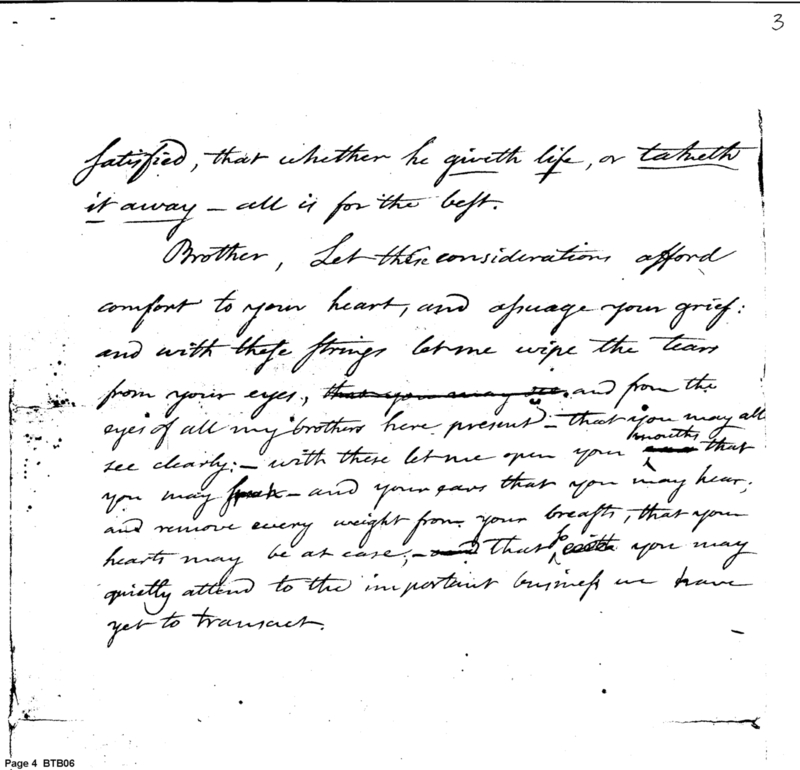 3
satisfied, that whether he giveth life, or taketh
it away – all is for the best.
Brother, Let these considerations afford
comfort to your heart, and assuage your grief:
and with these strings let me wipe the tears
from your eyes, that you may see, and from the
eyes of all my brothers here present – that you may all
see clearly: – with these let me open your mouths that
you may speak – and your ears that you may hear;
and remove every weight from your breasts, that your
hearts may be at ease; – and that so you may
quietly attend to the important business we have
yet to transact.
Page 4 BTB06